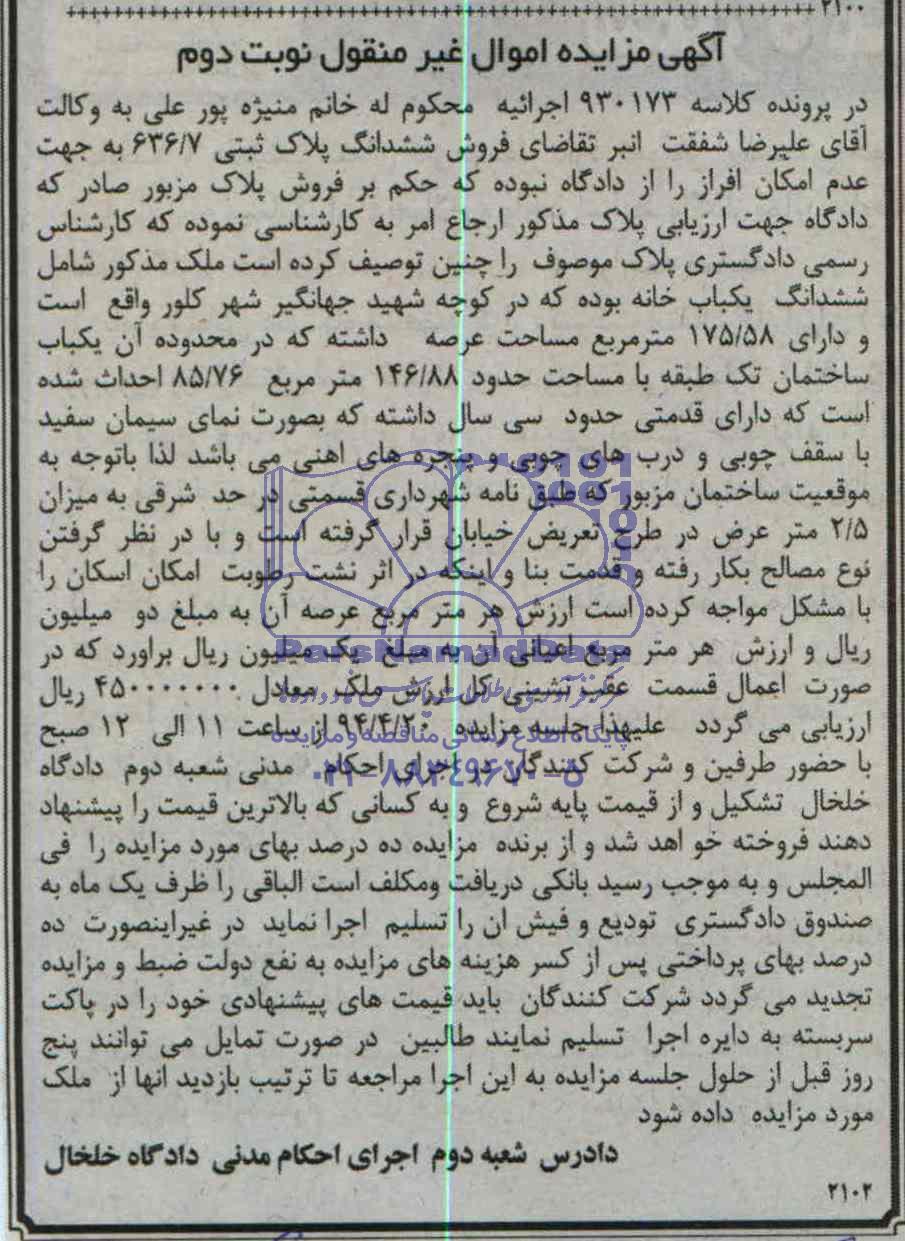 ۲۱۰۰
آگهی مزایده اموال غیر منقول نوبت دوم
در پرونده کلاسه ۹۳۰۱۷۳ اجرائیه محکوم له خانم منیژه پور علی به وکالت
آقای علیرضا شفقت انبر تقاضای فروش ششدانگ پلاک ثبتی ۶۳۶/۷ به جهت
عدم امکان افراز را از دادگاه نبوده که حکم بر فروش پلاک مزبور صادر که
دادگاه جهت ارزیابی پلاک مذکور ارجاع امر به کارشناسی نموده که کارشناس
رسمی دادگستری پلاک موصوف را چنین توصیف کرده است ملک مذکور شامل
ششدانگ یکباب خانه بوده که در کوچه شهید جهانگیر شهر کلور واقع است
و دارای ۱۷۵/۵۸ مترمربع مساحت عرصه داشته که در محدوده آن یکباب
ساختمان تک طبقه با مساحت حدود ۱۴۶/۸۸ متر مربع ۸۵/۷۶ احداث شده
است که دارای قدمتی حدود سی سال داشته که بصورت نمای سیمان سفید
با سقف چوبی و درب های چوبی و پنجره های اهنی می باشد لذا باتوجه به
موقعیت ساختمان مزبور که طبق نامه شهرداری قسمتی در حد شرقی به میزان
۲/۵ متر عرض در طرح تعریض خیابان قرار گرفته است و با در نظر گرفتن
نوع مصالح بکار رفته و قدمت بنا و اینکه در اثر نشت رطوبت امکان اسکان را
با مشکل مواجه کرده است ارزش هر متر مربع عرصه آن به مبلغ دو میلیون
ریال و ارزش هر متر مربع اعیانی آن به مبلغ یک میلیون ریال براورد که در
صورت اعمال قسمت عقب نشینی کل ارزش ملک معادل ۴۵۰۰۰۰۰۰۰ ریال
ارزیابی می گردد علیهذا جلسه مزایده ۹۴/۴/۲۰ از ساعت ۱۱ الی ۱۲ صبح
با حضور طرفین و شرکت کنندگان در اجرای احکام مدنی شعبه دوم دادگاه
خلخال تشکیل و از قیمت پایه شروع و به کسانی که بالاترین قیمت را پیشنهاد
دهند فروخته خو اهد شد و از برنده مزایده ده درصد بهای مورد مزایده را فی
المجلس و به موجب رسید بانکی دریافت ومکلف است الباقی را ظرف یک ماه به
صندوق دادگستری تودیع و فیش ان را تسلیم اجرا نماید در غیراینصورت ده
درصد بهای پرداختی پس از کسر هزینه های مزایده به نفع دولت ضبط و مزایده
تجدید می گردد شرکت کنندگان باید قیمت های پیشنهادی خود را در پاکت
سربسته به دایره اجرا تسلیم نمایند طالبین در صورت تمایل می توانند پنج
روز قبل از حلول جلسه مزایده به این اجرا مراجعه تا ترتیب بازدید انها از ملک
مورد مزایده داده شود
دادرس شعبه دوم اجرای احکام مدنی دادگاه خلخال
۲۱۰۲
ParsNamadData
پایگاه اطلاع رسانی مناقصه و مزایده
۰۲۱-۸۸۳۴۹۶۷۰-۵